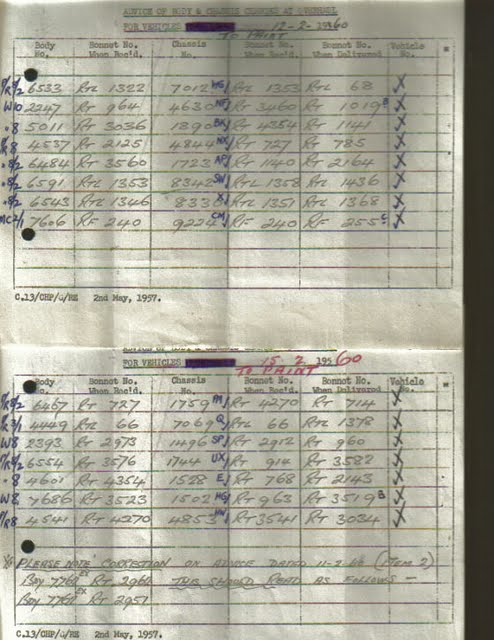 ADVICE OF BODY & CHASSIS CHANGES AT OVERHAUL
FOR VEHICLES 12-2-1960
TO PAINT
Body No. Bonnet No. When Rec'd. Chassis No. Bonnet No. When Rec'd. Bonnet No. When Delivered Vehicle No.
6533 RTL 1322 7012 RTL 1353 RTL 68 X
W10 2247 RT 964 4630 RT 3460 RT 1019 B X
8 5011 RT 3036 1890 BK RT 4354 RT 1141 X
R8 4537 RT 2125 4844 NX RT 727 RT 785 X
8/2 6484 RT 3560 1723 AP RT 1140 RT 2164 X
8/2 6591 RTL 1353 8342 SW RTL 1358 RTL 1436 X
8/2 6543 RTL 1346 8330 X RTL 1351 RTL 1368 X
MC2/1 7606 RF 240 9224 CM RF 240 RF 255 C X
C.13/CHP/G/RE 2nd May, 1957.
FOR VEHICLES 15-2-1960
TO PAINT
Body No. Bonnet No. When Rec'd. Chassis No. Bonnet No. When Rec'd. Bonnet No. When Delivered Vehicle No.
6467 RT 727 1759 RT 4270 RT 714 X
4449 RTL 66 7069 Q RTL 66 RTL 1378 X
W8 8393 RT 2973 1496 SP RT 2912 RT 960 X
6554 RT 3576 1744 UX RT 914 RT 3582 X
8 4601 RT 4354 1528 E RT 768 RT 2143 X
W8 7686 RT 3523 1502 HG RT 963 RT 3519 B X
R8 4541 RT 4270 4853 HW RT 3541 RT 3034 X
PLEASE NOTE CORRECTION ON ADVICE DATED 11-2-60 (ITEM 2)
Body RT THIS SHOULD READ AS FOLLOWS -
Body RT 2951
C.13/CHP/G/RE 2nd May, 1957.